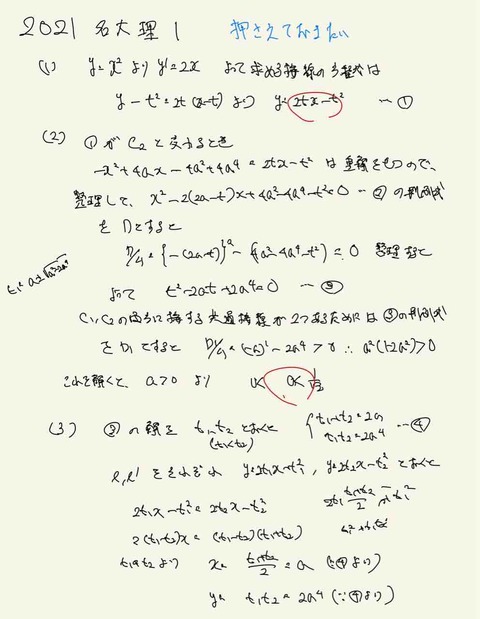 2021 名大理 1 押さえておきたい
(1) y=x² より y'=2x よって求める接線の方程式は
y-t²=2t(x-t) より y=2tx-t² …①
(2) ①がC₂と接するとき
-x²+4ax-4a²+4a⁴=2tx-t² は重解をもつので、
整理して、x²-2(2a-t)x+4a²-4a⁴-t²=0 …② の判別式
をDとすると
D/4={-(2a-t)}²-(4a²-4a⁴-t²)=0 整理すると
よって t²-2at+2a⁴=0 …③
C₁,C₂の両方に接する共通接線が2つあるためには③の判別式
をD₁とすると D/4=(-a)²-2a⁴>0 ∴a²(1-2a²)>0
これを解くと、a>0 より 0<a<1/√2
(3) ③の解を t₁,t₂ とおくと t₁+t₂=2a
(t₁<t₂) t₁t₂=2a⁴ …④
l,l'をそれぞれ y=2t₁x-t₁², y=2t₂x-t₂² とおくと
2t₁x-t₁²=2t₂x-t₂²
2(t₁-t₂)x=(t₁-t₂)(t₁+t₂)
t₁≠t₂より x=(t₁+t₂)/2=a (∵④より)
y=t₁t₂=2a⁴ (∵④より)